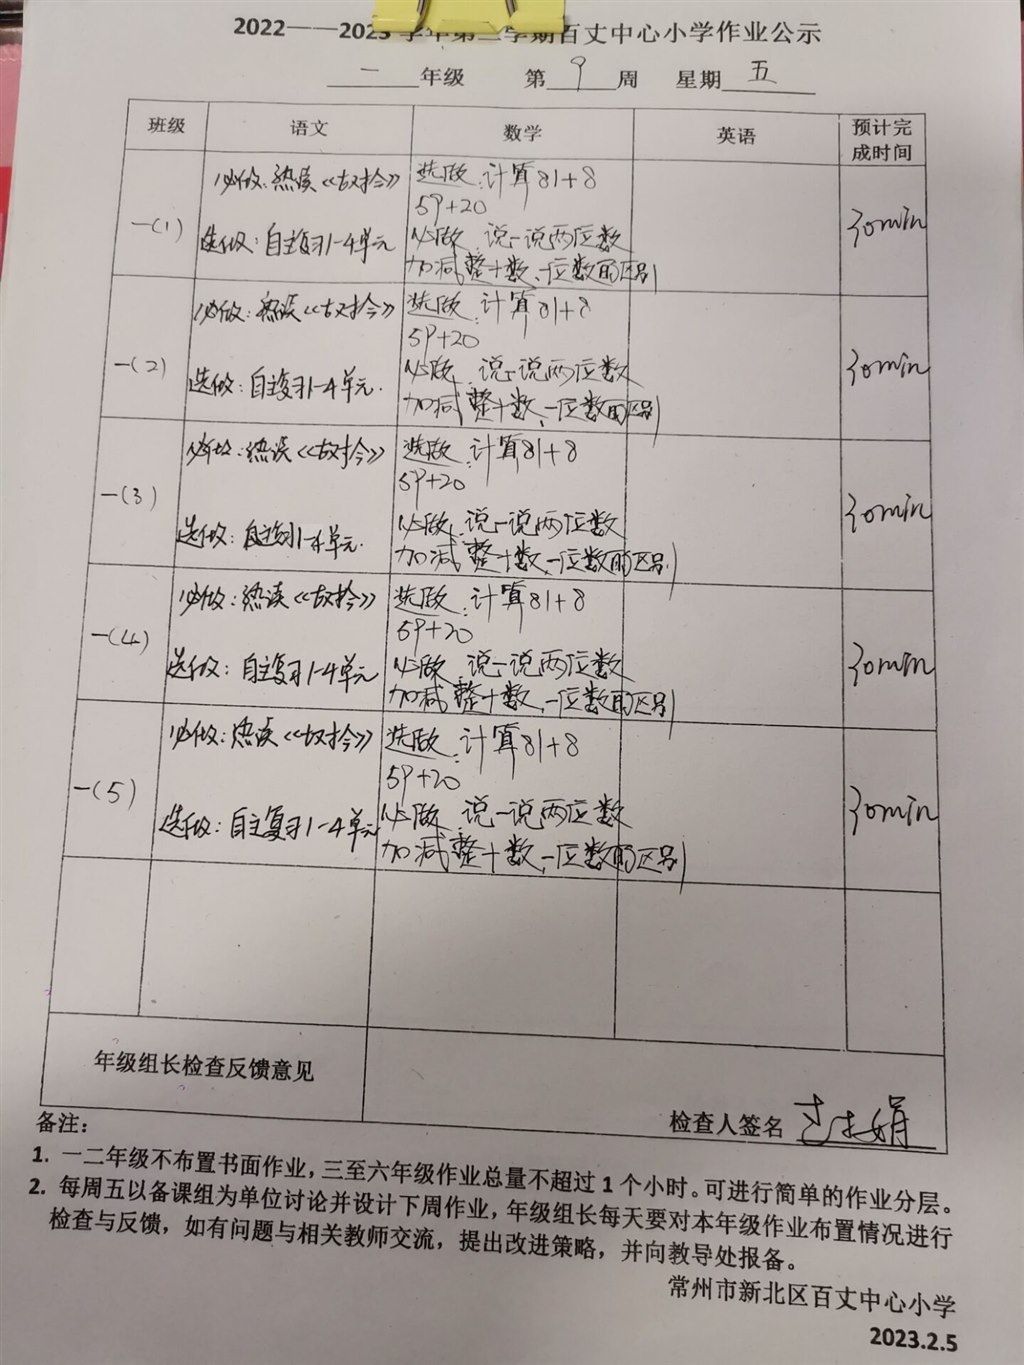 2022——2023 学年第二学期百丈中心小学作业公示
一 年级 第 9 周 星期 五
班级 语文 数学 英语 预计完成时间
一(1)
必做:熟读《古对今》
选做:自主复习1-4单元
选做:计算81+8
59+20
必做:说一说两位数
加减整十数、一位数的区别
30min
一(2)
必做:熟读《古对今》
选做:自主复习1-4单元.
选做:计算81+8
59+20
必做:说一说两位数
加减整十数、一位数的区别
30min
一(3)
必做:熟读《古对今》
选做:自主复习1-4单元.
选做:计算81+8
59+20
必做:说一说两位数
加减整十数、一位数的区别
30min
一(4)
必做:熟读《古对今》
选做:自主复习1-4单元
选做:计算81+8
59+20
必做:说一说两位数
加减整十数、一位数的区别
30min
一(5)
必做:熟读《古对今》
选做:自主复习1-4单元
选做:计算81+8
59+20
必做:说一说两位数
加减整十数、一位数的区别
30min
年级组长检查反馈意见
检查人签名
备注:
1. 一二年级不布置书面作业,三至六年级作业总量不超过 1 个小时。可进行简单的作业分层。
2. 每周五以备课组为单位讨论并设计下周作业,年级组长每天要对本年级作业布置情况进行
检查与反馈,如有问题与相关教师交流,提出改进策略,并向教导处报备。
常州市新北区百丈中心小学
2023.2.5